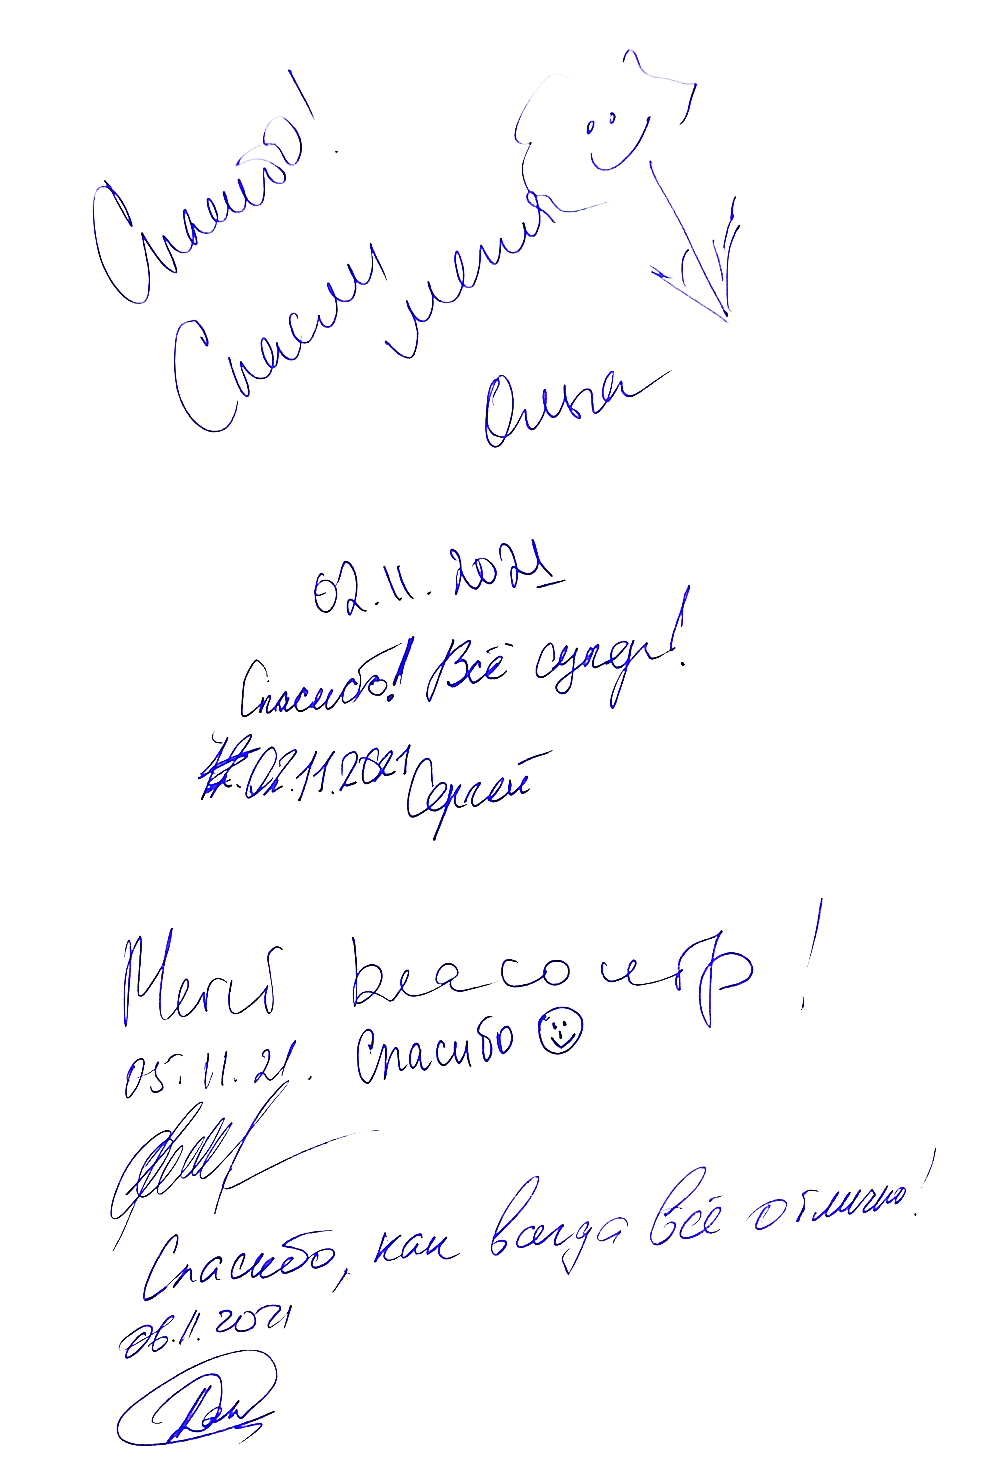 Спасибо!
Спасли меня
Ольга
02.11.2021
Спасибо! Всё супер!
02.11.2021 Сергей
05.11.21. Спасибо
Спасибо, как всегда всё отлично!
06.11.2021